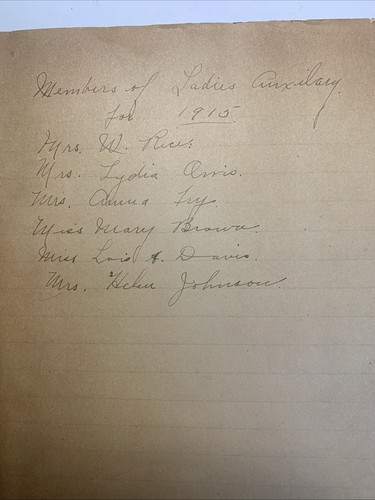 Members of Ladies Auxilary
for 1915
Mrs. W. Rice.
Mrs. Lydia Orris.
Mrs. Anna Fry.
Miss Mary Brown.
Miss Lois A. Davis.
Mrs. Helen Johnson.